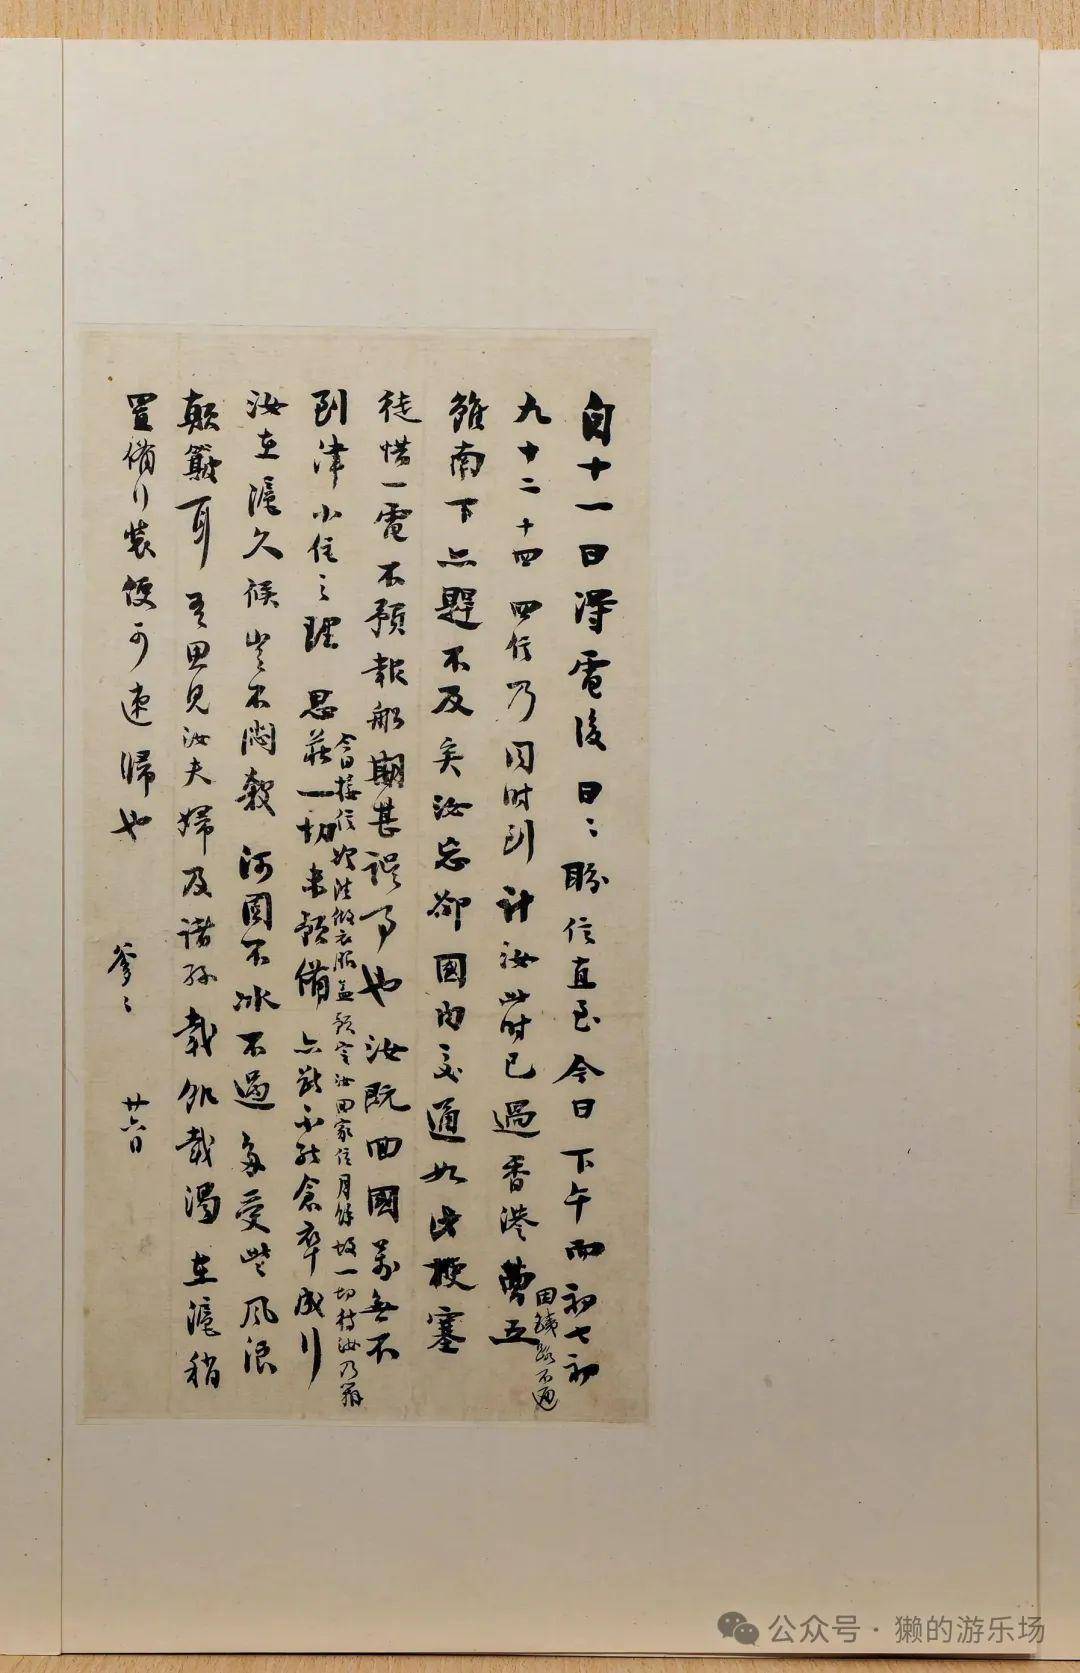 自十一日得電後日〻盼信直至今日下午而初七初
九十二十四四信乃同时到计汝此时已過香港曹五
因鐵路不通
雖南下亦趕不及矣汝忘卻國内交通如此梗塞
徒惜一電不預報船期甚误事也汝既回國萬無不
到津小住之理思莊一切未預備亦斷不能倉卒成行
今日接信始趕做衣服蓋預定汝回家住月餘故一切待汝乃辦
汝在滬久候豈不悶殺河固不冰不過多受些風浪
顛簸耳吾思見汝夫婦及诸孙載飢載渴在滬稍
置備行裝便可速歸也
爹〻 廿六日
公众号·獭的游乐场